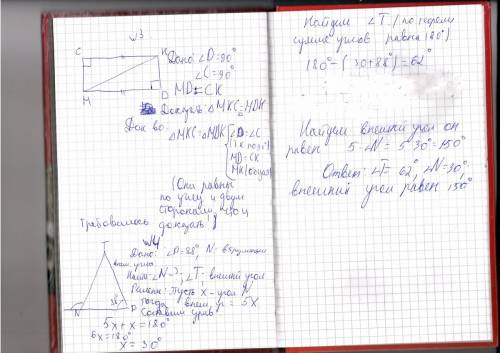 №3
C
K
M
D
Дано: ∠D=90°
∠C=90°
MD=CK
Доказать: ΔMKC=ΔMDK
Док во:
ΔMKC=ΔMDK
∠D=∠C
(по усл.)
MD=CK
MK(общая)
(Они равны
по углу и двум
сторонам, что и
требовалось
доказать)
№4
T
N
P
88°
Дано: ∠P=88°, N - вершина
внеш. угла
Найти: ∠N-?, ∠T, внешний угол
Решение: Пусть x - угол N
тогда внеш. у = 5x
Составим урав
5x+x=180°
6x=180°
x=30°
Найдем ∠T (по теореме
сумма углов равна 180°)
180°-(30+88°)=62°
Найдем внешний угол он
равен 5·∠N=5·30°=150°
Ответ: ∠T=62°, ∠N=30°,
внешний угол равен 150°